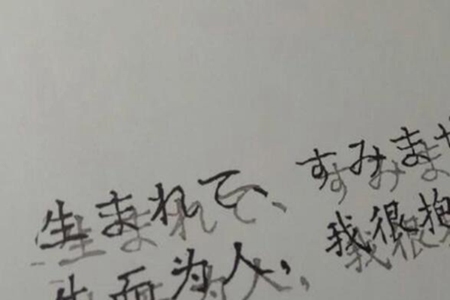 生まれて、すみませ
生而为人,我很抱